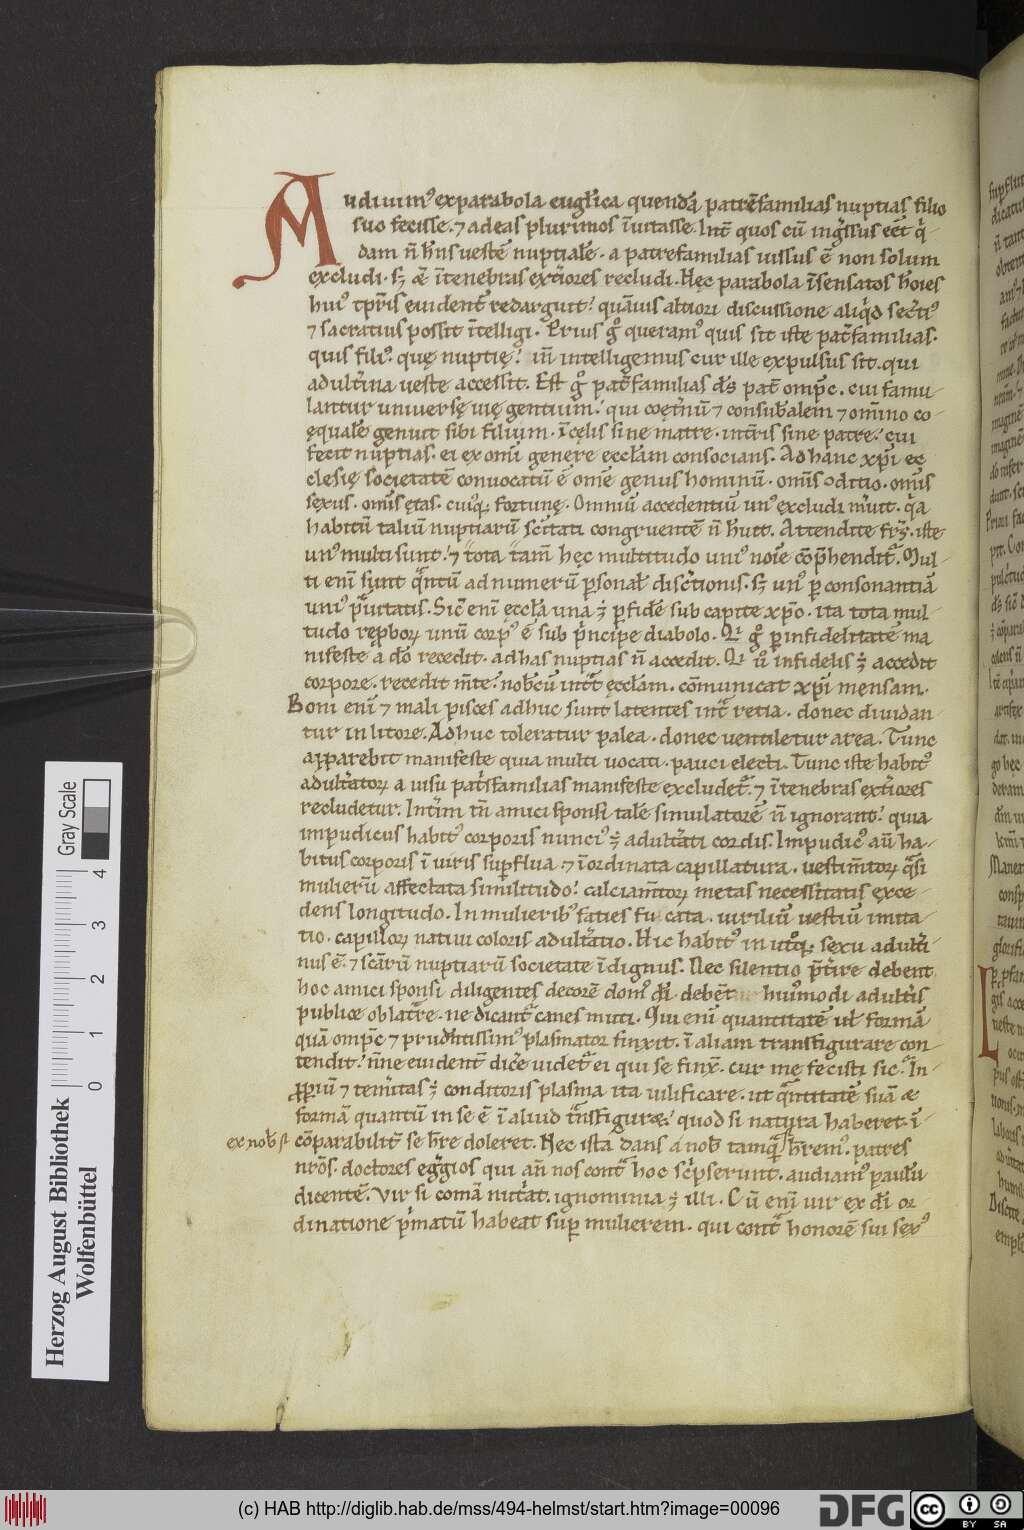 Audiuim᷒ ex parabola eugl̅ica quendã patrẽfamilias nuptias filio
suo fecisse. ⁊ ad eas plurimos ĩuitasse. Int̃ quos cũ ingr̃ssus eẽt q̃
dam ñ hñs uestẽ nuptialẽ. a patrefamilias iussus ẽ non solum
excludi. sꝫ & ĩ tenebras ext̃iores recludi. Hęc parabola ĩsensatos ho̅ies
hui᷒ tp̃ris euident̃ redarguit. quãuis altiori discussione aliq̃d secr̃ti᷒
⁊ sacratius possit ĩtelligi. Prius gͦ queram᷒ quis sit iste pat̃familias.
quis fili᷒. quę nuptię. iñ intelligemus cur ille expulsus sit. qui
adult̃ina ueste accessit. Est gͦ pat̃familias ds̃ pat̃ omp̃c. cui famu-
lantur uniuersę uię gentium. qui coęt̃nũ ⁊ consub̃alem ⁊ om̃ino co-
ęqualẽ genuit sibi filium. ĩ cęlis sine matre. int̃ris sine patre. cui
fecit nuptias. ei ex om̃i genere eccl̅am consocians. Ad hanc xp̃i ec
clesię societatẽ conuocatũ ẽ om̃e genus hominũ. om̃is ꝯditio. om̃is
sexus. om̃is ętas. cuiq꙳ fortunę. Omniũ accedentiũ un᷒ excludi m̃uit. q̃a
habitũ taliũ nuptiarũ sc̃itati congruentẽ ñ h̃uit. Attendite frs̃. iste
un᷒ multi sunt. ⁊ tota tam̃ hęc multitudo uni᷒ noĩe cõp̃hendit̃. Mul-
ti eni̅ sunt q̃ntũ ad numerũ ꝑsonal̃ disc̃tionis. sꝫ un᷒ ꝑ consonantiã
uni᷒ p̃uitatis. Sic̃ eni̅ eccl̅a una ẽ ꝑ fidẽ sub capite xp̃o. ita tota mul-
tudo reꝓboꝝ unũ corp᷒ ẽ sub p̃ncipe diabolo. Qͥ gͦ ꝑ infidelitatẽ ma
nifeste a do̅ recedit. ad has nuptias ñ accedit. Qͥ uͦ infidelis ẽ accedit
corpore. recedit m̃te. nob̃cũ int̃ ęccl̅am. cõmunicat xp̃i mensam.
Boni eni̅ ⁊ mali pisces adhuc sunt latentes int̃ retia. donec diuidan-
tur in litore. Adhuc toleratur palea. donec uentiletur area. Tunc
apparebit manifeste quia multi uocati. pauci electi. Tunc iste habit᷒
adult̃atoꝝ a uisu pat̃sfamilias manifeste excludet̃. ⁊ ĩ tenebras ext̃iores
recludetur. Int̃im tñ amici sponsi talẽ simulatorẽ ñ ignorant. quia
impudicus habit᷒ corporis nunci᷒ ẽ adult̃ati cordis. Impudic᷒ au̅ ha-
bitus corporis ĩ uiris suꝑflua. ⁊ ĩordinata capillatura. uestim̃toꝝ q̃si
mulierũ affectata similitudo. calciam̃toꝝ metas necessitatis exce-
dens longitudo. In mulierib᷒ facies fucata. uiriliũ uestiũ imita
tio. capilloꝝ natiui coloris adult̃atio. Hic habit᷒ in utͦq꙳ sexu adult̃i-
nus ẽ. ⁊ sc̃arũ nuptiarũ societate ĩdignus. Nec silentio p̃t̃ire debent
hoc amici sponsi diligentes decorẽ dom᷒ di̅. debẽt huiᷤmodi adult̃is
publice oblat̃re. ne dicant̃ canes muti. Qui eni̅ quantitatẽ ut̃ formã
quã omp̃c ⁊ prudñtissim᷒ plasmator finxit. ĩ aliam transfigurare con-
tendit. ñne euident̃ dic̃e uidet̃ ei qui se finx̃. cur me fecisti sic. In-
ꝓꝑiũ ⁊ tem̃itas ẽ conditoris plasma ita uilificare. ut q̃ntitatẽ suã &
formã quantũ in se ẽ ĩ aliud t̃nsfiguret. quod si natura haberet. ĩ
ex nob̃ st̃ cõparabilit̃ se h̃re doleret. Nec ista dans a nob̃ tamq̃ h̃rem᷒. patres
nr̃os. doctores egg̃ios qui an̅ nos cont̃ hoc sc̃pserunt. audiam᷒ paulũ
dicentẽ. Vir si comã nut̃at. ignominia ẽ illi. Cũ eni̅ uir ex di̅ or
dinatione p̃matũ habeat suꝑ mulierem. qui cont̃ honorẽ sui sex᷒
Herzog August Bibliothek
Wolfenbüttel
Gray Scale
0 1 2 3 4
(c) HAB http://diglib.hab.de/mss/494-helmst/start.htm?image=00096
DFG
cc BY SA